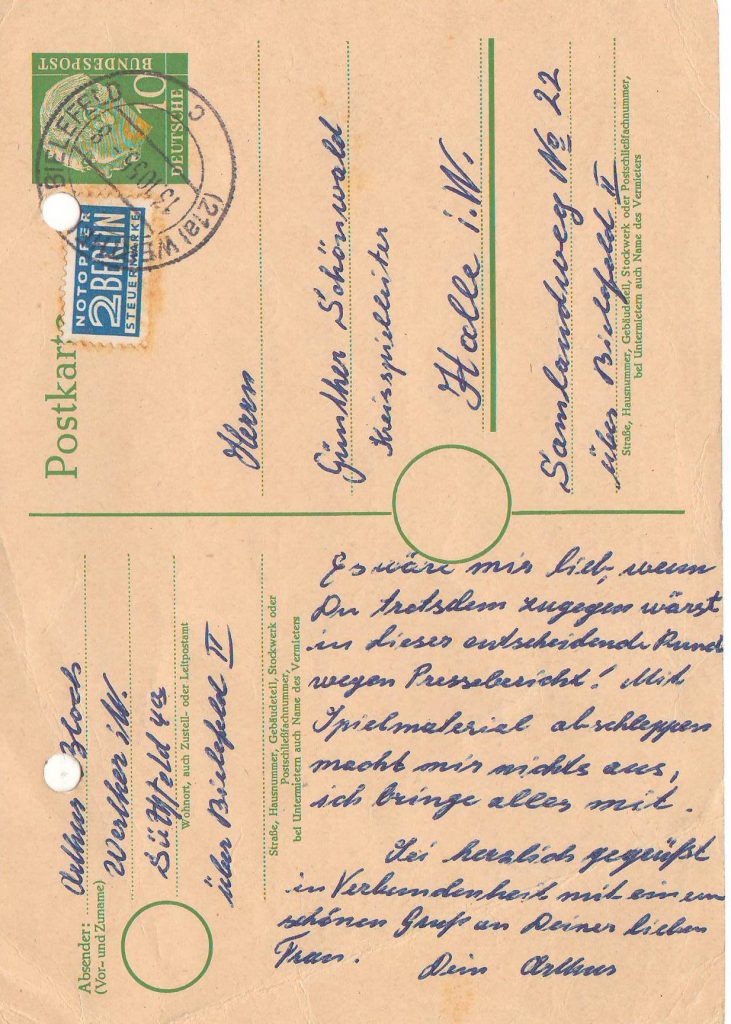 Postkarte
NOTOPFER
2 BERLIN
STEUERMARKE
DEUTSCHE
BUNDESPOST
10
BIELEFELD
(21a)
Herrn
Günther Schönwald
Kreisspielleiter
Halle i.W.
Samlandweg No 22
über Bielefeld II
Straße, Hausnummer, Gebäudeteil, Stockwerk oder Postschließfachnummer,
bei Untermietern auch Name des Vermieters
Absender:
(Vor- und Zuname)
Arthur Bloch
Werther i.W.
Süthfeld 4a
Wohnort, auch Zustell- oder Leitpostamt
über Bielefeld II
Straße, Hausnummer, Gebäudeteil, Stockwerk oder
Postschließfachnummer,
bei Untermietern auch Name des Vermieters
Es wäre mir lieb, wenn
Du trotsdem zugegen wärst
in dieser entscheidende Rund
wegen Pressebericht! Mit
Spielmaterial abschleppen
macht mir nichts aus,
ich bringe alles mit.
Sei herzlich gegrüßt
in Verbundenheit mit einem
schönen Gruß an Deiner lieben
Frau. Dein Arthur